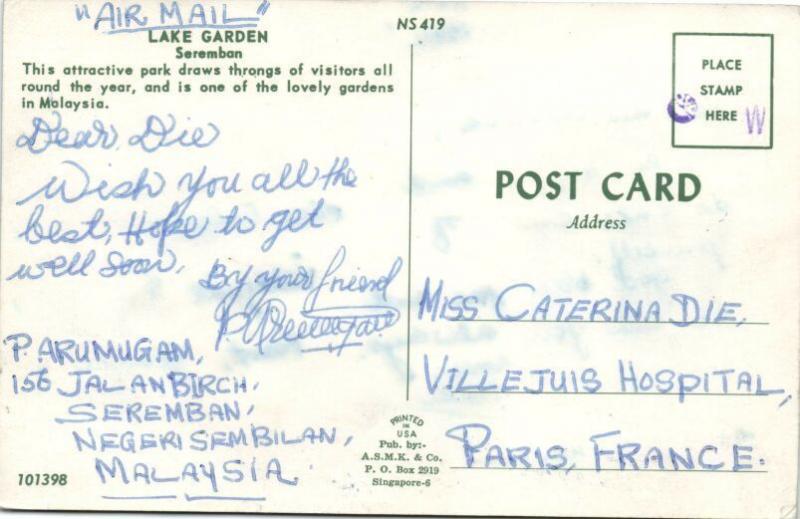 "AIR MAIL"
LAKE GARDEN
Seremban
This attractive park draws throngs of visitors all
round the year, and is one of the lovely gardens
in Malaysia.
Dear Die
Wish you all the
best, Hope to get
well soon.
By your friend
P. Arumugam
P. ARUMUGAM,
156 JALAN BIRCH,
SEREMBAN,
NEGERI SEMBILAN,
MALAYSIA.
101398
NS 419
PRINTED
IN
USA
Pub. by:-
A.S.M.K. & Co.
P. O. Box 2919
Singapore-6
PLACE
STAMP
HERE
W
POST CARD
Address
MISS CATERINA DIE,
VILLEJUIS HOSPITAL,
PARIS, FRANCE.